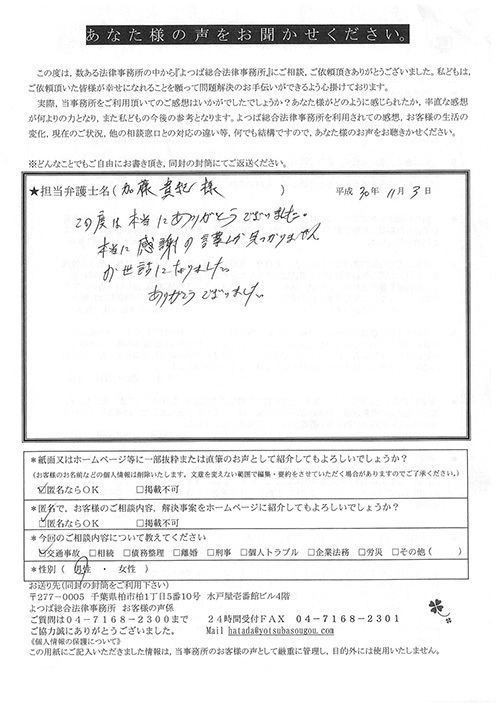 あなた様の声をお聞かせください。
この度は，数ある法律事務所の中から『よつば総合法律事務所』にご相談，ご依頼頂きありがとうございました。私どもは，
ご依頼頂いた皆様が幸せになれることを願って問題解決のお手伝いができるよう心掛けております。
実際，当事務所をご利用頂いてのご感想はいかがでしたでしょうか？あなた様がどのように感じられたか，率直な感想
が何よりの力となり，また私どもの今後の参考となります。よつば総合法律事務所を利用されての感想，お客様の生活の
変化，現在のご状況，他の相談窓口との対応の違い等，何でも結構ですので，あなた様のお声をお聴きかせください。
※どんなことでもご自由にお書き頂き，同封の封筒にてご返送ください。
★担当弁護士名（加藤貴紀 様　）　平成 30年 11月 3日
この度は本当にありがとうございました。
本当に感謝の言葉しか見つかりません
お世話になりました。
ありがとうございました。
*紙面又はホームページ等に一部抜粋または直筆のお声として紹介してもよろしいでしょうか？
（お客様のお名前などの個人情報は削除いたします。文意を変えない範囲で編集・要約をさせていただく場合がありますのでご了承ください。）
☑匿名ならＯＫ　□掲載不可
*匿名で，お客様のご相談内容，解決事案をホームページに紹介してもよろしいでしょうか？
☑匿名ならＯＫ　□掲載不可
*今回のご相談内容について教えてください
☑交通事故　□相続　□債務整理　□離婚　□刑事　□個人トラブル　□企業法務　□労災　□その他（　）
*性別（　男性　・　女性　）
お送り先（同封の封筒をご利用下さい）
〒277－0005　千葉県柏市柏1丁目5番10号　水戸屋壱番館ビル4階
よつば総合法律事務所　お客様の声係
ご質問は０４－７１６８－２３００まで　２４時間受付ＦＡＸ　０４－７１６８－２３０１
ご協力誠にありがとうございました。　Mail hatada@yotsubasougou.com
《個人情報の保護について》
この用紙にご記入いただきました情報は，当事務所のお客様の声として厳重に管理し，目的外には使用いたしません。